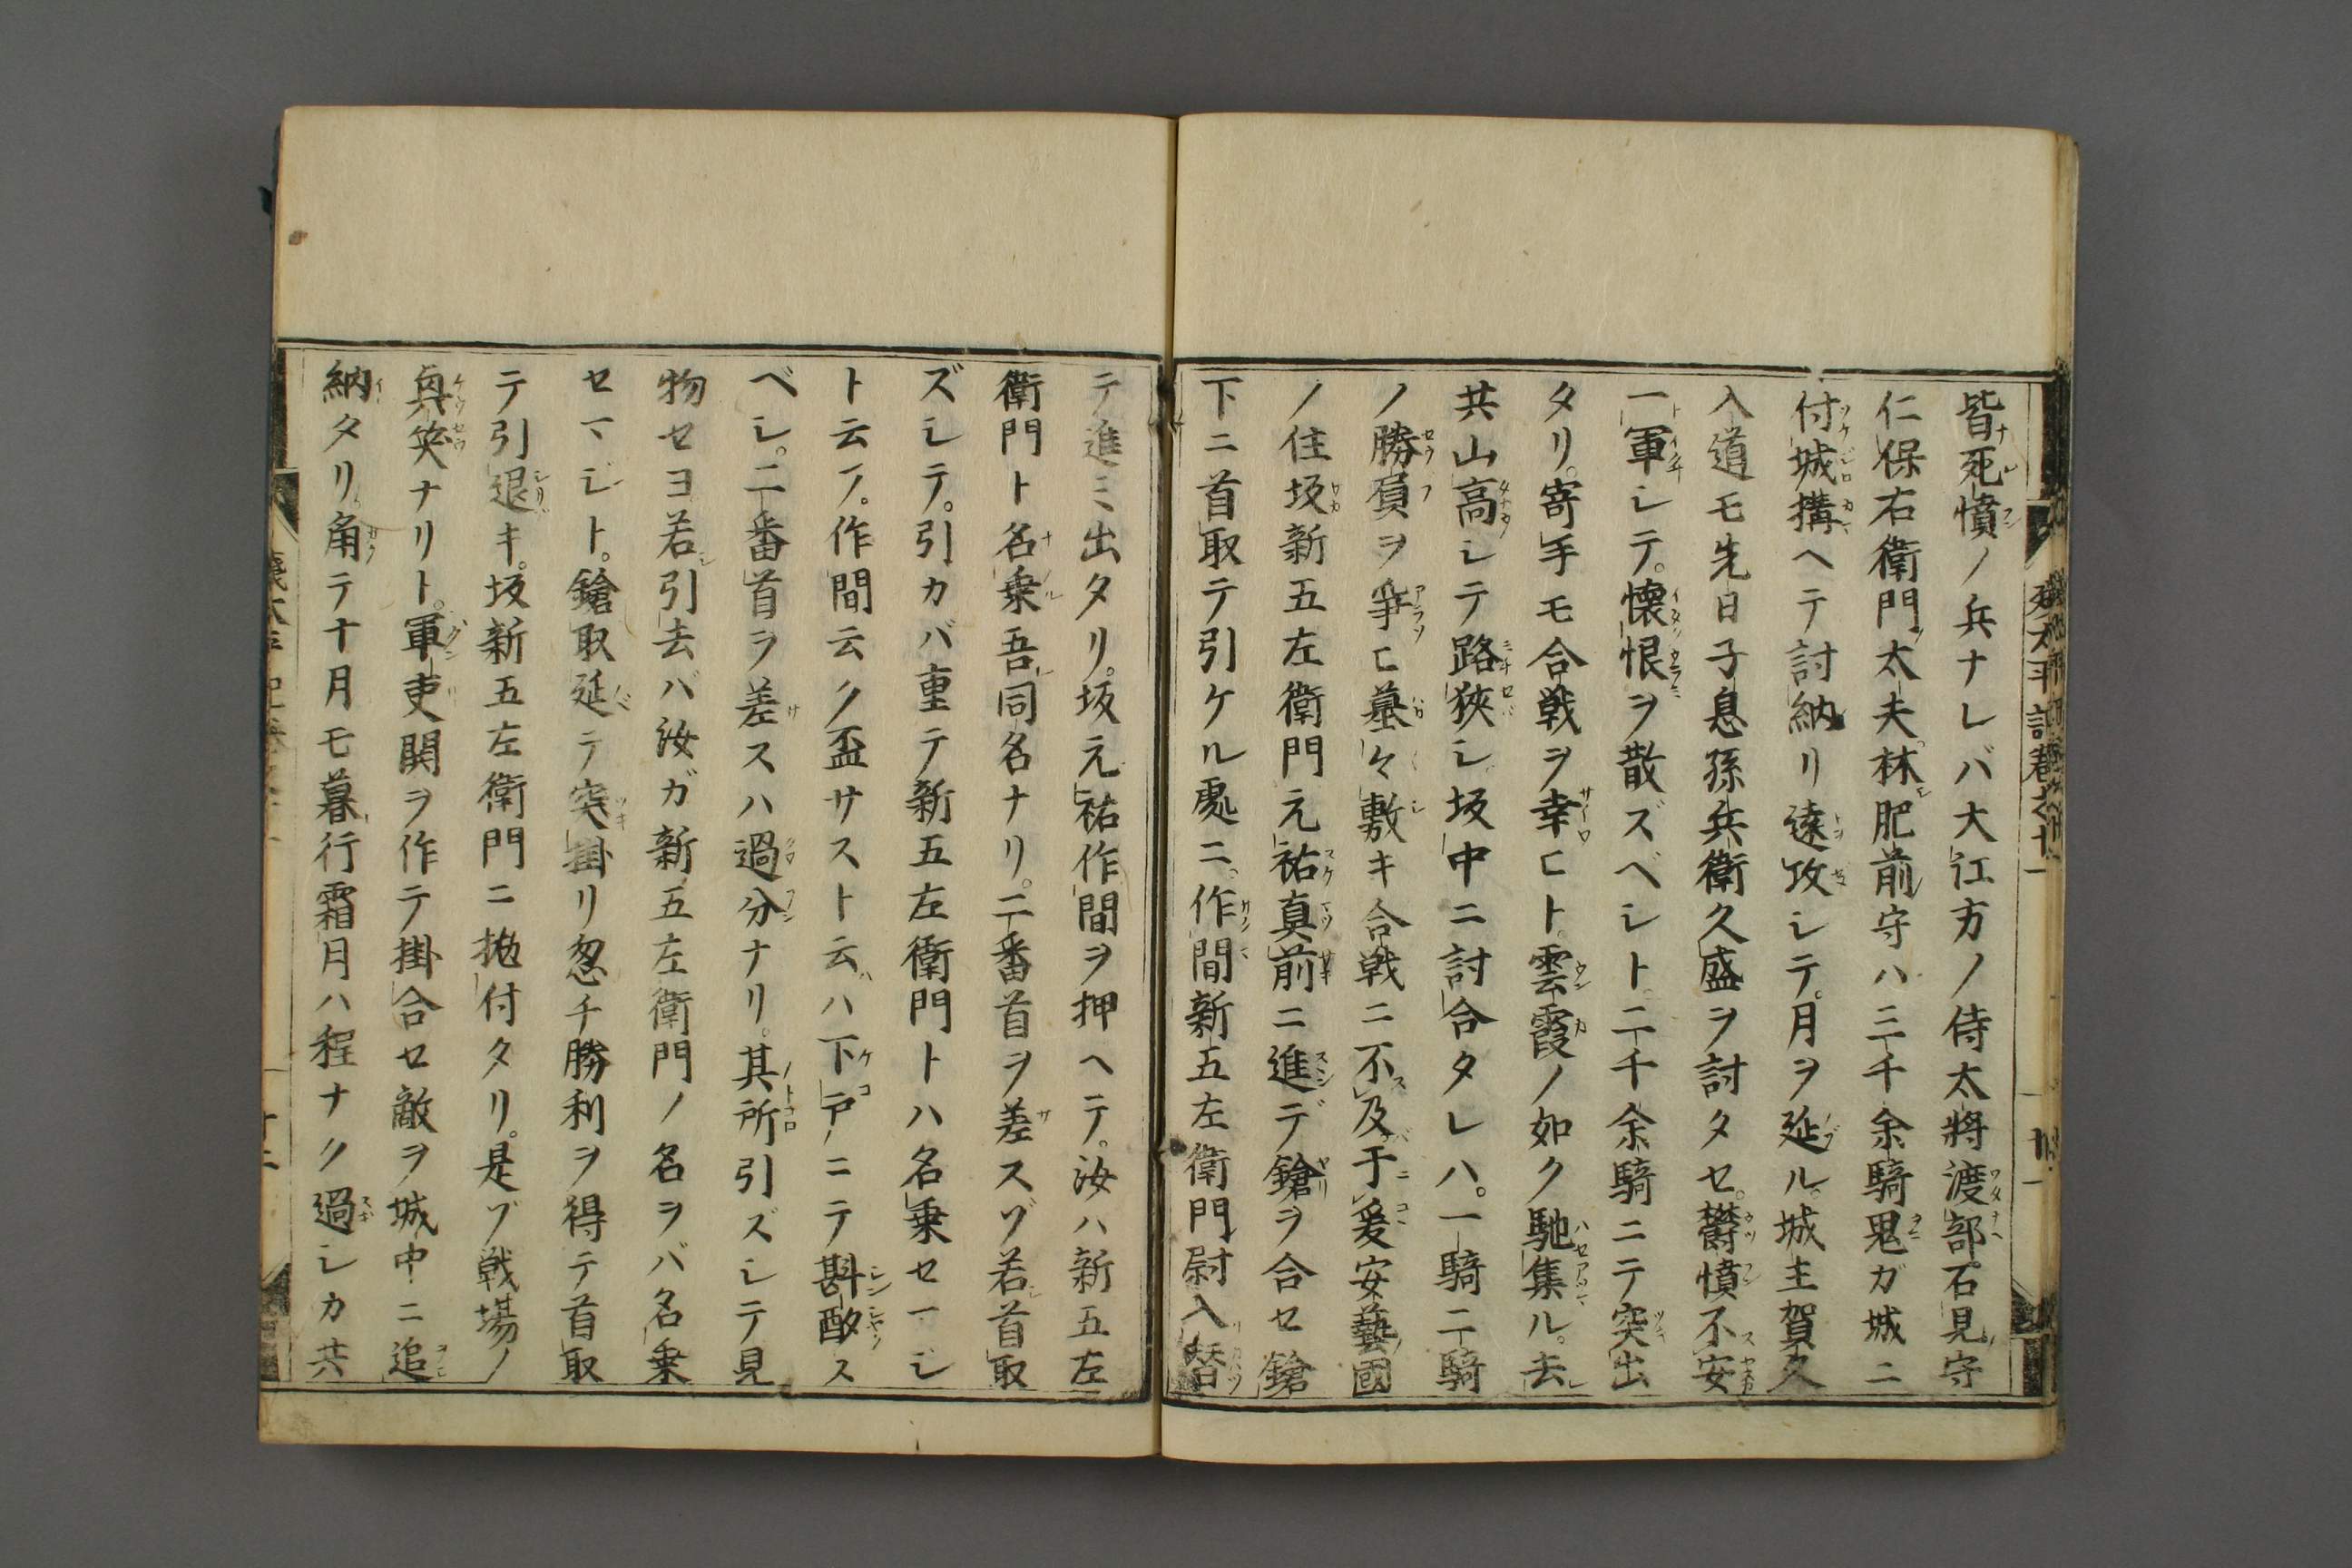 皆死憤ノ兵ナレバ大江方ノ侍太將渡部石見守
仁保右衛門太夫林肥前守ハ三千余騎鬼ガ城ニ
付城搆ヘテ討納リ遠攻シテ。月ヲ延ル。城主賀久
入道モ先日子息孫兵衛久盛ヲ討タセ。欝憤不安
一軍シテ。懐恨ヲ散ズベシト。二千余騎ニテ突出
タリ。寄手モ合戦ヲ幸ヒト。雲霞ノ如ク馳集ル。去
共山高シテ路狹シ坂中ニ討合タレハ。一騎二騎
ノ勝負ヲ爭ヒ墓々敷キ合戦ニ不及于爰安藝國
ノ住坂新五左衛門元祐真前ニ進デ鎗ヲ合セ鎗
下ニ首取テ引ケル処ニ。作間新五左衛門尉入替
テ進ミ出タリ。坂元祐作間ヲ押ヘテ。汝ハ新五左
衛門ト名乗吾同名ナリ。二番首ヲ差スゾ若首取
ズシテ。引カバ重テ新五左衛門トハ名乗セマジ
ト云フ。作間云ク盃サスト云ハハ下戸ニテ斟酌ス
ベシ。二番首ヲ差スハ過分ナリ。其所引ズシテ見
物セヨ若引去バ汝ガ新五左衛門ノ名ヲバ名乗
セマジト。鎗取延テ突掛リ忽チ勝利ヲ得テ首取
テ引退キ。坂新五左衛門ニ抛付タリ。是ゾ戦場ノ
興笑ナリト。軍吏閧ヲ作テ掛合セ敵ヲ城中ニ追
納タリ。角テ十月モ暮行霜月ハ程ナク過シカ共